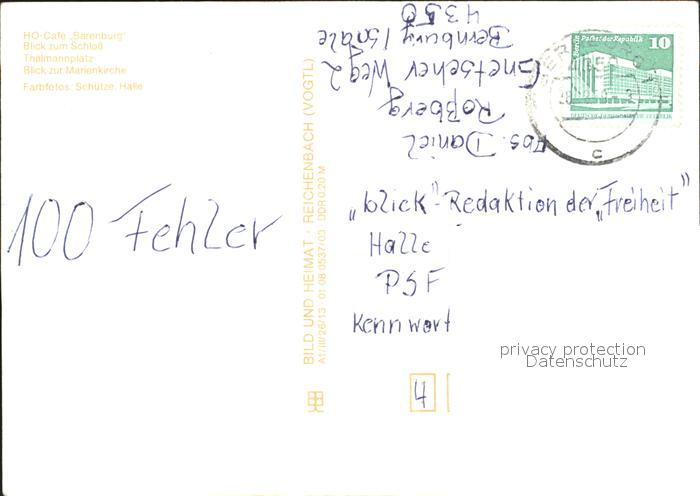 HO-Café „Bärenburg"
Blick zum Schloß
Thälmannplatz
Blick zur Marienkirche
Farbfotos: Schütze, Halle
100 Fehler
BILD UND HEIMAT · REICHENBACH (VOGTL)
A1/III/26/13 01 08 0537/03 DDR 0,20 M
Abs. Daniel
Roßberg
Gnetscher Weg 2
Bernburg / Saale
4350
Palast der Republik
Berlin
10
C
„blick"-Redaktion der „Freiheit"
Halle
PSF
Kennwort
privacy protection
Datenschutz
4